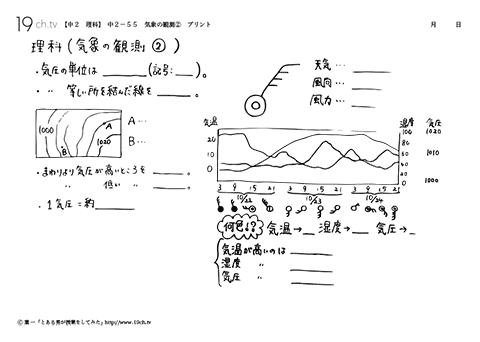 19ch.tv 【中2 理科】 中2-55 気象の観測② プリント 月 日
理科(気象の観測②)
・気圧の単位は ______ (記号: ___)。
・ 〃 等しい所を結んだ線を _____。
1000
1020
A
B
A…
B…
・まわりより気圧が高いところを _____。
〃 低い 〃 _____。
・1気圧=約_____
天気… _____
風向… _____
風力… _____
気温 湿度 気圧
20
10
0
100
80
60
40
20
0
1020
1010
1000
3 9 15 21 3 9 15 21 3 9 15 21
10/22 10/23 10/24
何色!? 気温→__ 湿度→__ 気圧→__
気温が高いのは ______
湿度 〃 ______
気圧 〃 ______
Ⓒ 葉一「とある男が授業をしてみた」 http://www.19ch.tv